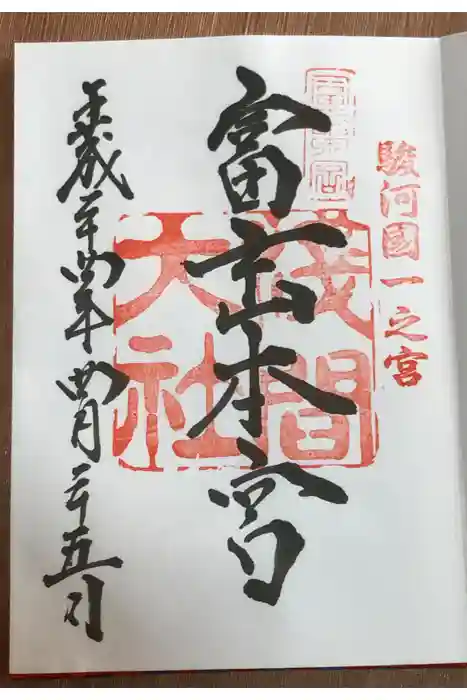 駿河國一之宮
富士山本宮
淺間
大社
平成二十四年四月二十五日